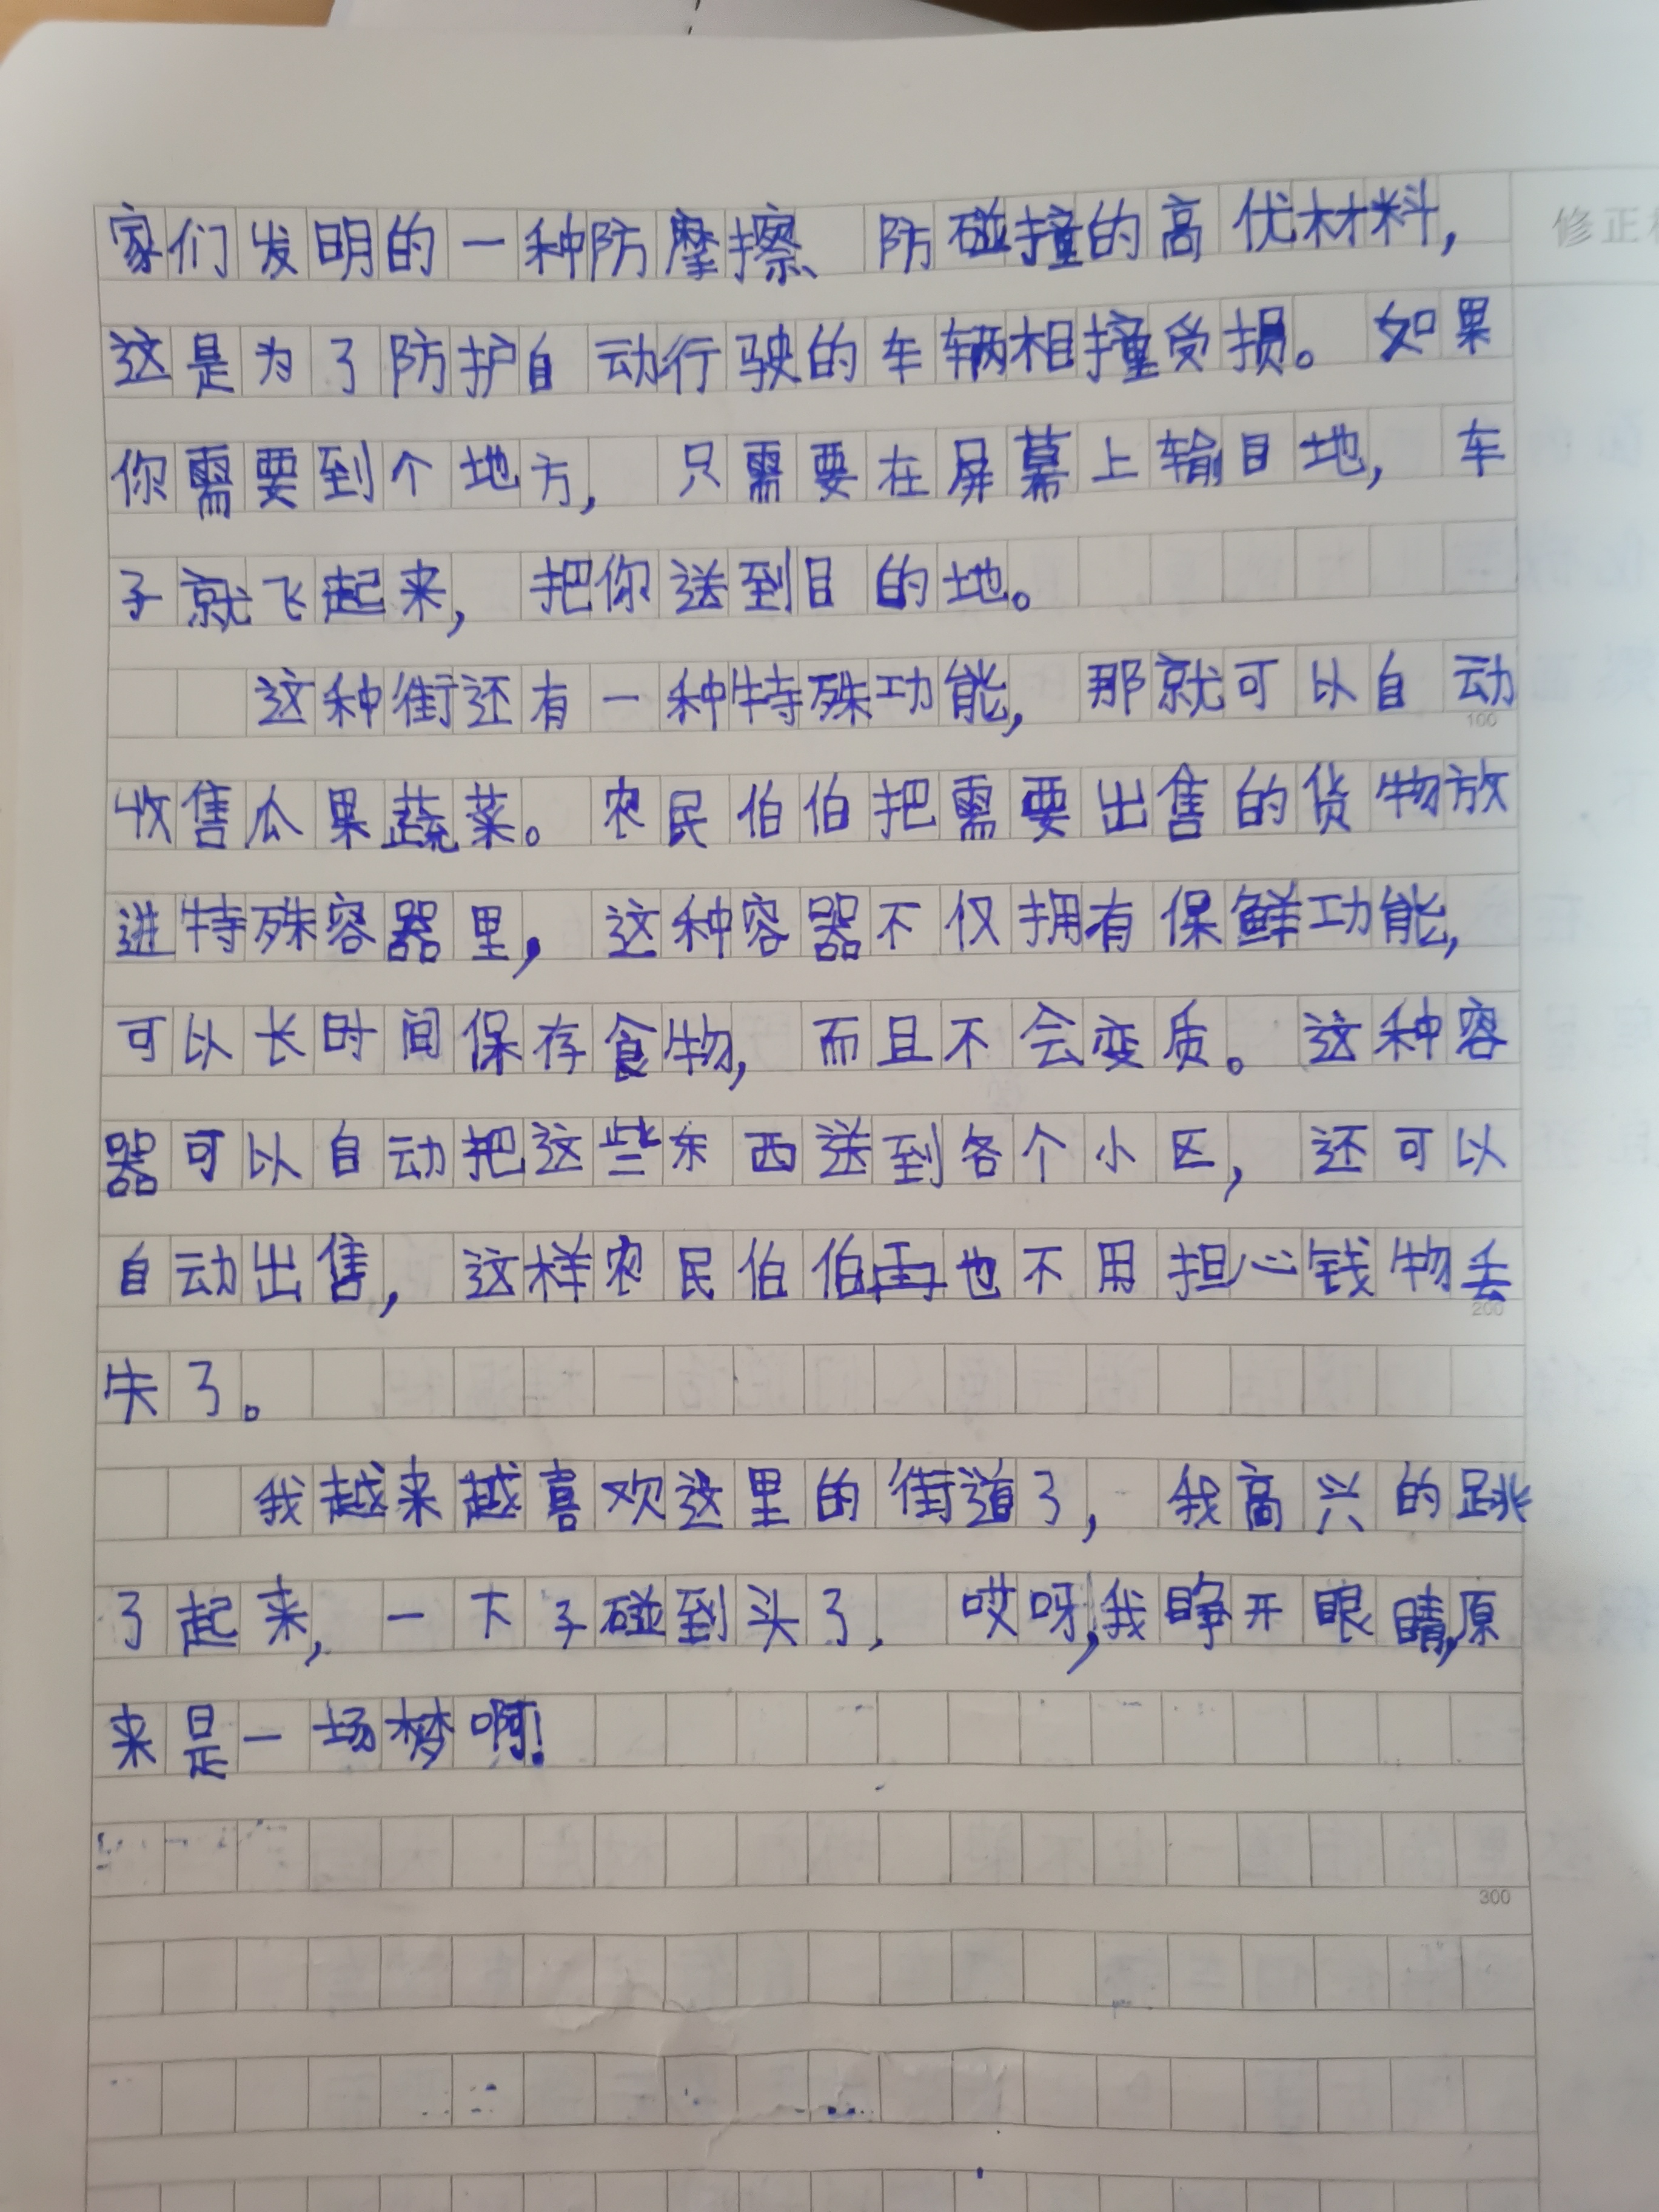 修正
家们发明的一种防摩擦、防碰撞的高优材料,
这是为了防护自动行驶的车辆相撞受损。如果
你需要到个地方,只需要在屏幕上输目地,车
子就飞起来,把你送到目的地。
这种街还有一种特殊功能,那就可以自动
100
收售瓜果蔬菜。农民伯伯把需要出售的货物放
进特殊容器里,这种容器不仅拥有保鲜功能,
可以长时间保存食物,而且不会变质。这种容
器可以自动把这些东西送到各个小区,还可以
自动出售,这样农民伯伯再也不用担心钱物丢
200
失了。
我越来越喜欢这里的街道了,我高兴的跳
了起来,一下子碰到头了,哎呀,我睁开眼睛,原
来是一场梦啊!
300